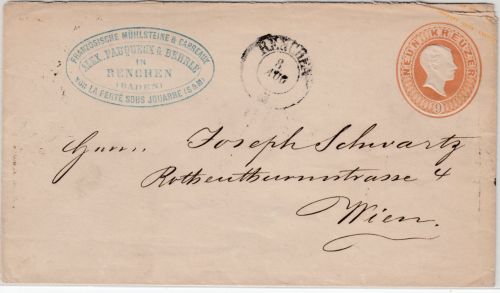 FRANZÖSISCHE MÜHLSTEINE & CARREAUX
ALEX. FAUQUEUX & BEHRLE
IN
RENCHEN
(BADEN)
VON LA FERTÉ SOUS JOUARRE (S&M)
RENCHEN
8
AUG
NEUN KREUZER
9
Herrn Joseph Schwartz
Rothenthurmstrasse 4
Wien.